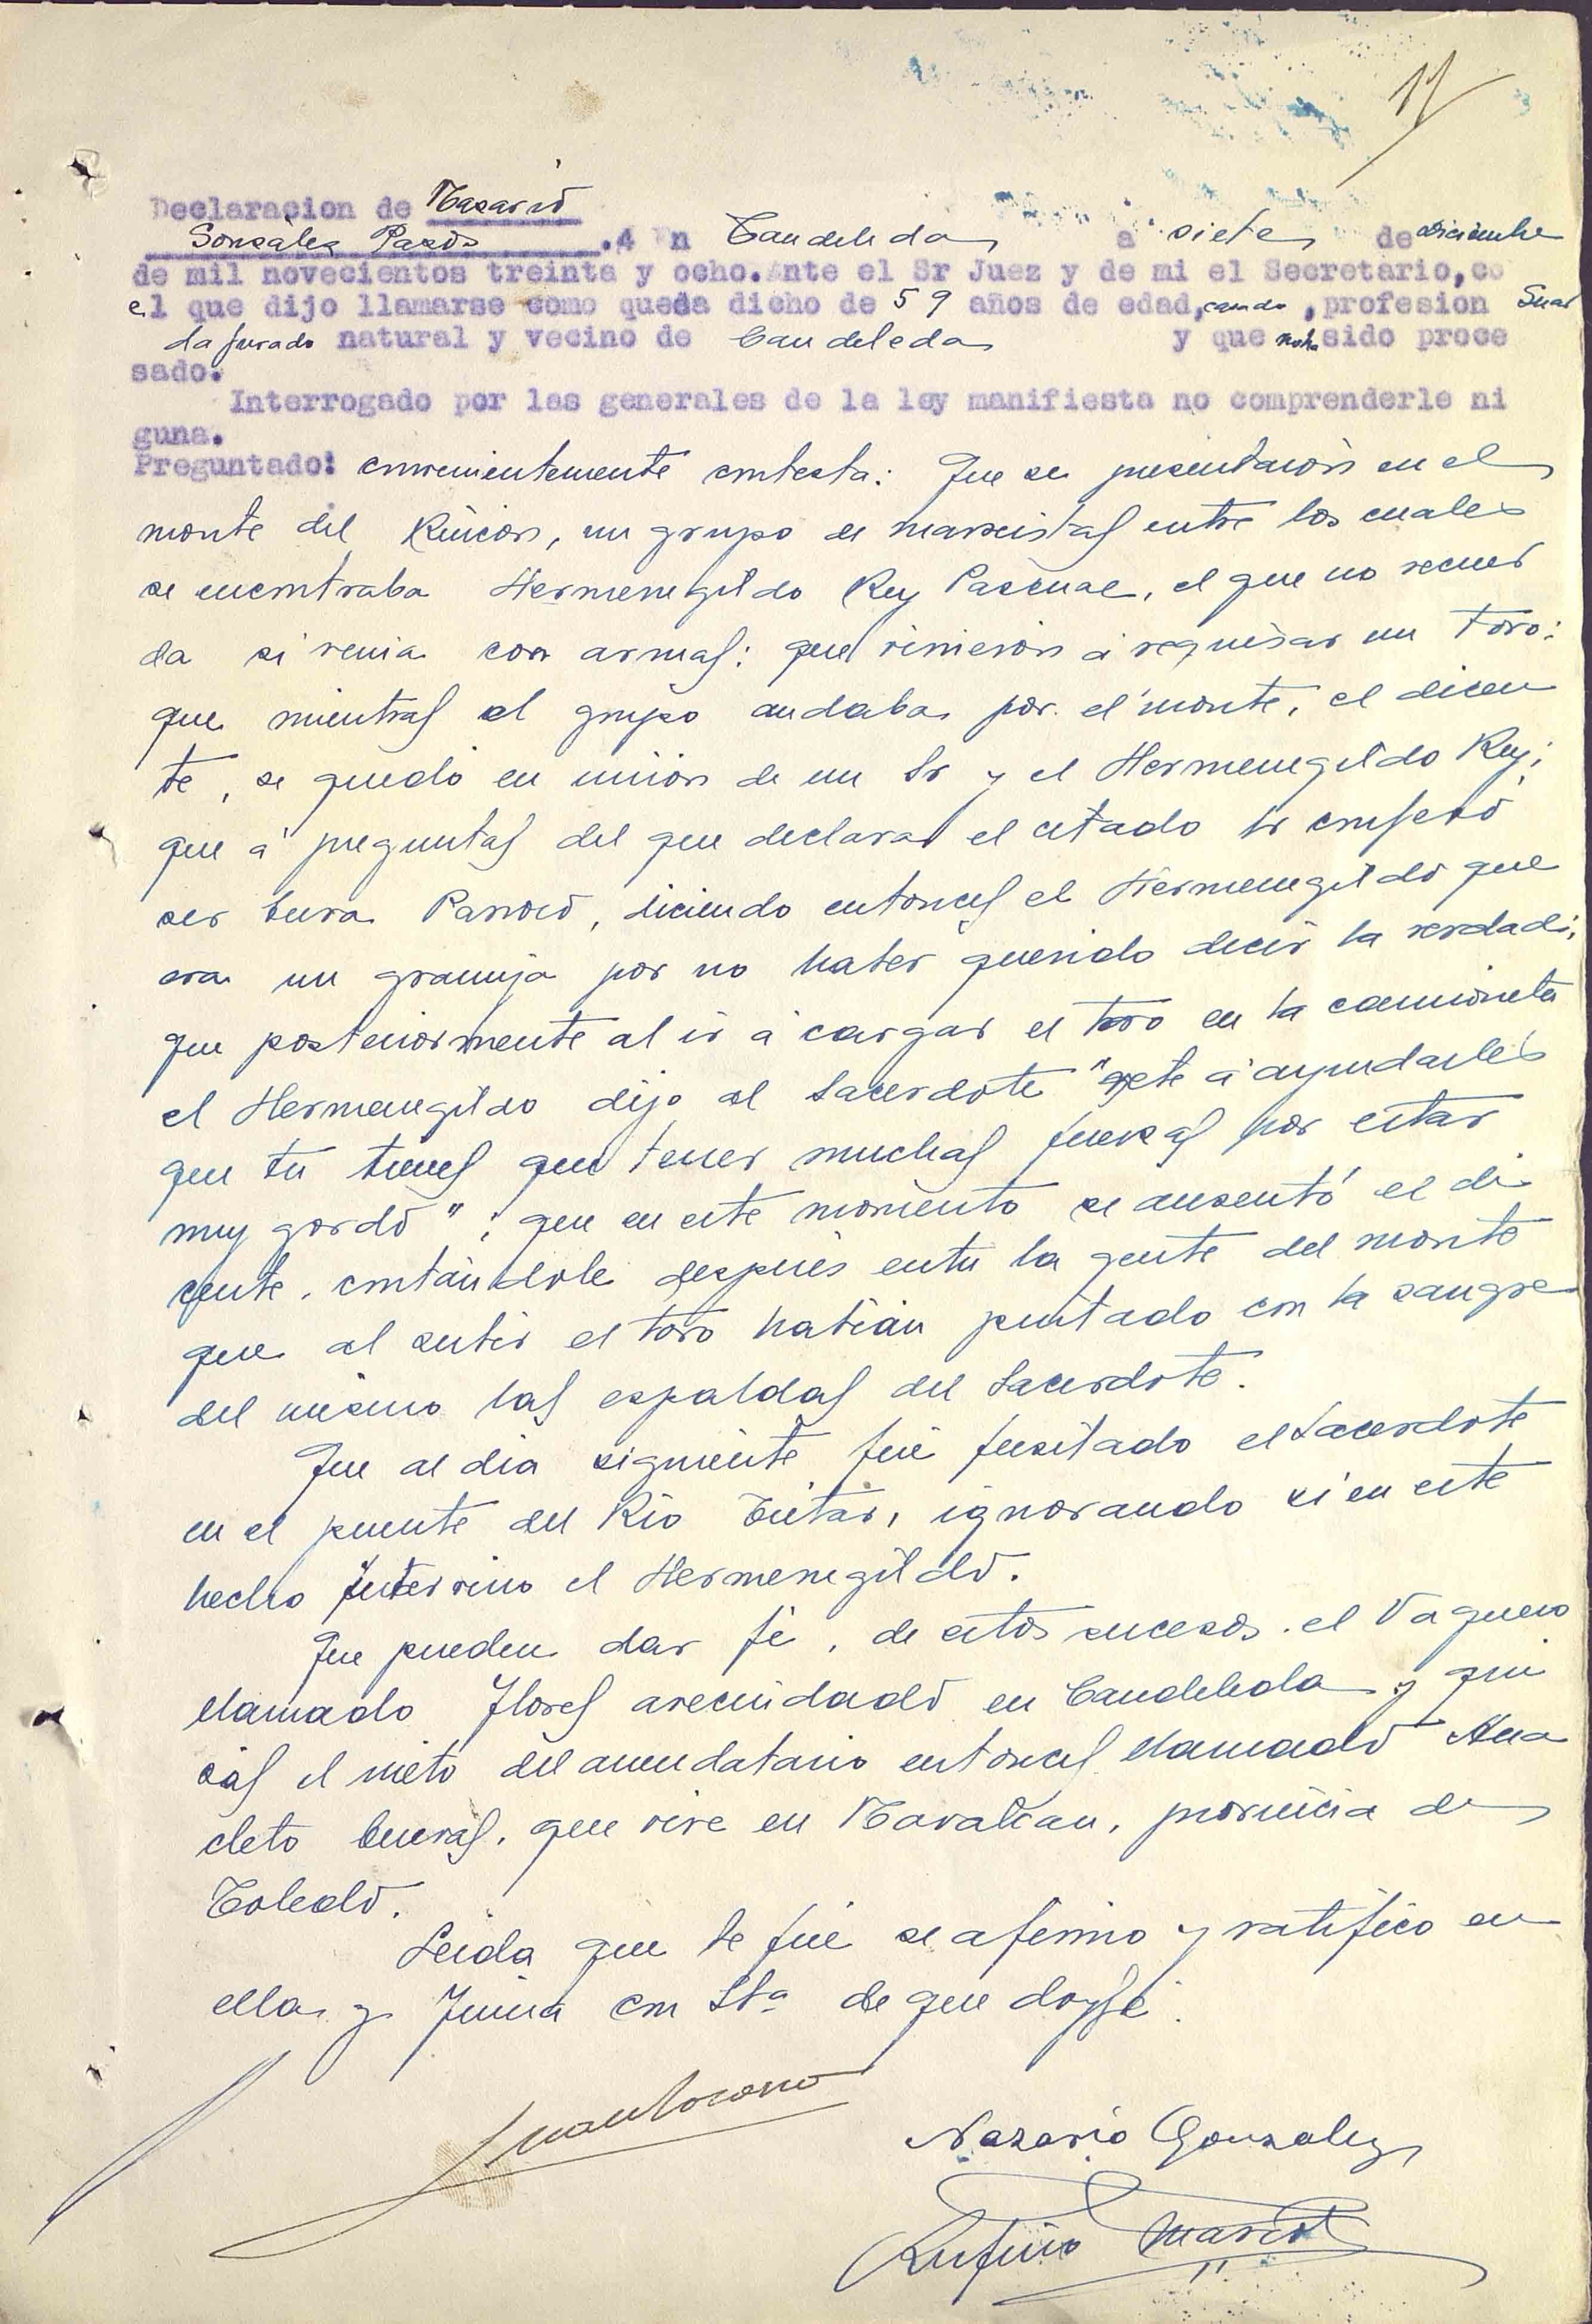 11
Declaracion de Nazario
Gonzàlez . En Candeleda a siete de diciembre
de mil novecientos treinta y ocho. Ante el Sr Juez y de mi el Secretario, co
el que dijo llamarse como queda dicho de 59 años de edad, casado, profesion Guar
da jurado natural y vecino de Candeleda y que no ha sido proce
sado.
Interrogado por las generales de la ley manifiesta no comprenderle ni
guna.
Preguntado: convenientemente contesta: Que se presentaron en el
monte del Rincon, un grupo de marxistas entre los cuales
se encontraba Hermenegildo Rey Pascual, el que no recuer
da si venia con armas; que vinieron á requisar un toro;
que mientras el grupo andaba por el monte, el dicen
te, se quedó en unión de un Sr y el Hermenegildo Rey;
que á preguntas del que declara el citado Sr confesó
ser Cura Parroco, diciendo entonces el Hermenegildo que
era un granuja por no haber querido decir la verdad;
que posteriormente al ir á cargar el toro en la camioneta
el Hermenegildo dijo al Sacerdote " á ayudarles
que tu tienes que tener muchas fuerzas por estar
muy gordo"; que en este momento se ausentó el di
cente, contándole despues entre la gente del monte
que al subir el toro habian pintado con la sangre
del mismo las espaldas del Sacerdote.
Que al dia siguiente fué fusilado el Sacerdote
en el puente del Rio Tietar, ignorando si en este
hecho intervino el Hermenegildo.
Que pueden dar fé, de estos sucesos. el Vaquero
llamado Flores avecindado en Candeleda y qui
zás el nieto del arrendatario entonces llamado Ana
cleto , que vive en Navalcan, provincia de
Toledo.
Leida que le fué se afirmo y ratifico en
ella y firma con Sª de que doy fé.
Nazario Gonzalez
Rufino